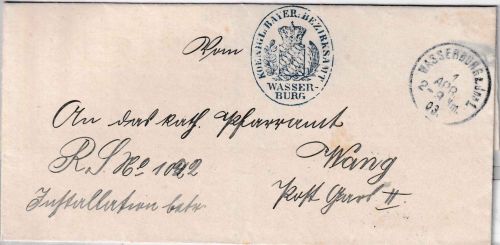 Vom
KOENIGL. BAYER. BEZIRKSAMT
WASSER-
BURG
WASSERBURG
1
APR
03
An das kath. Pfarramt
R. S. No 1042
Wang
Installation betr.
Post Gars II